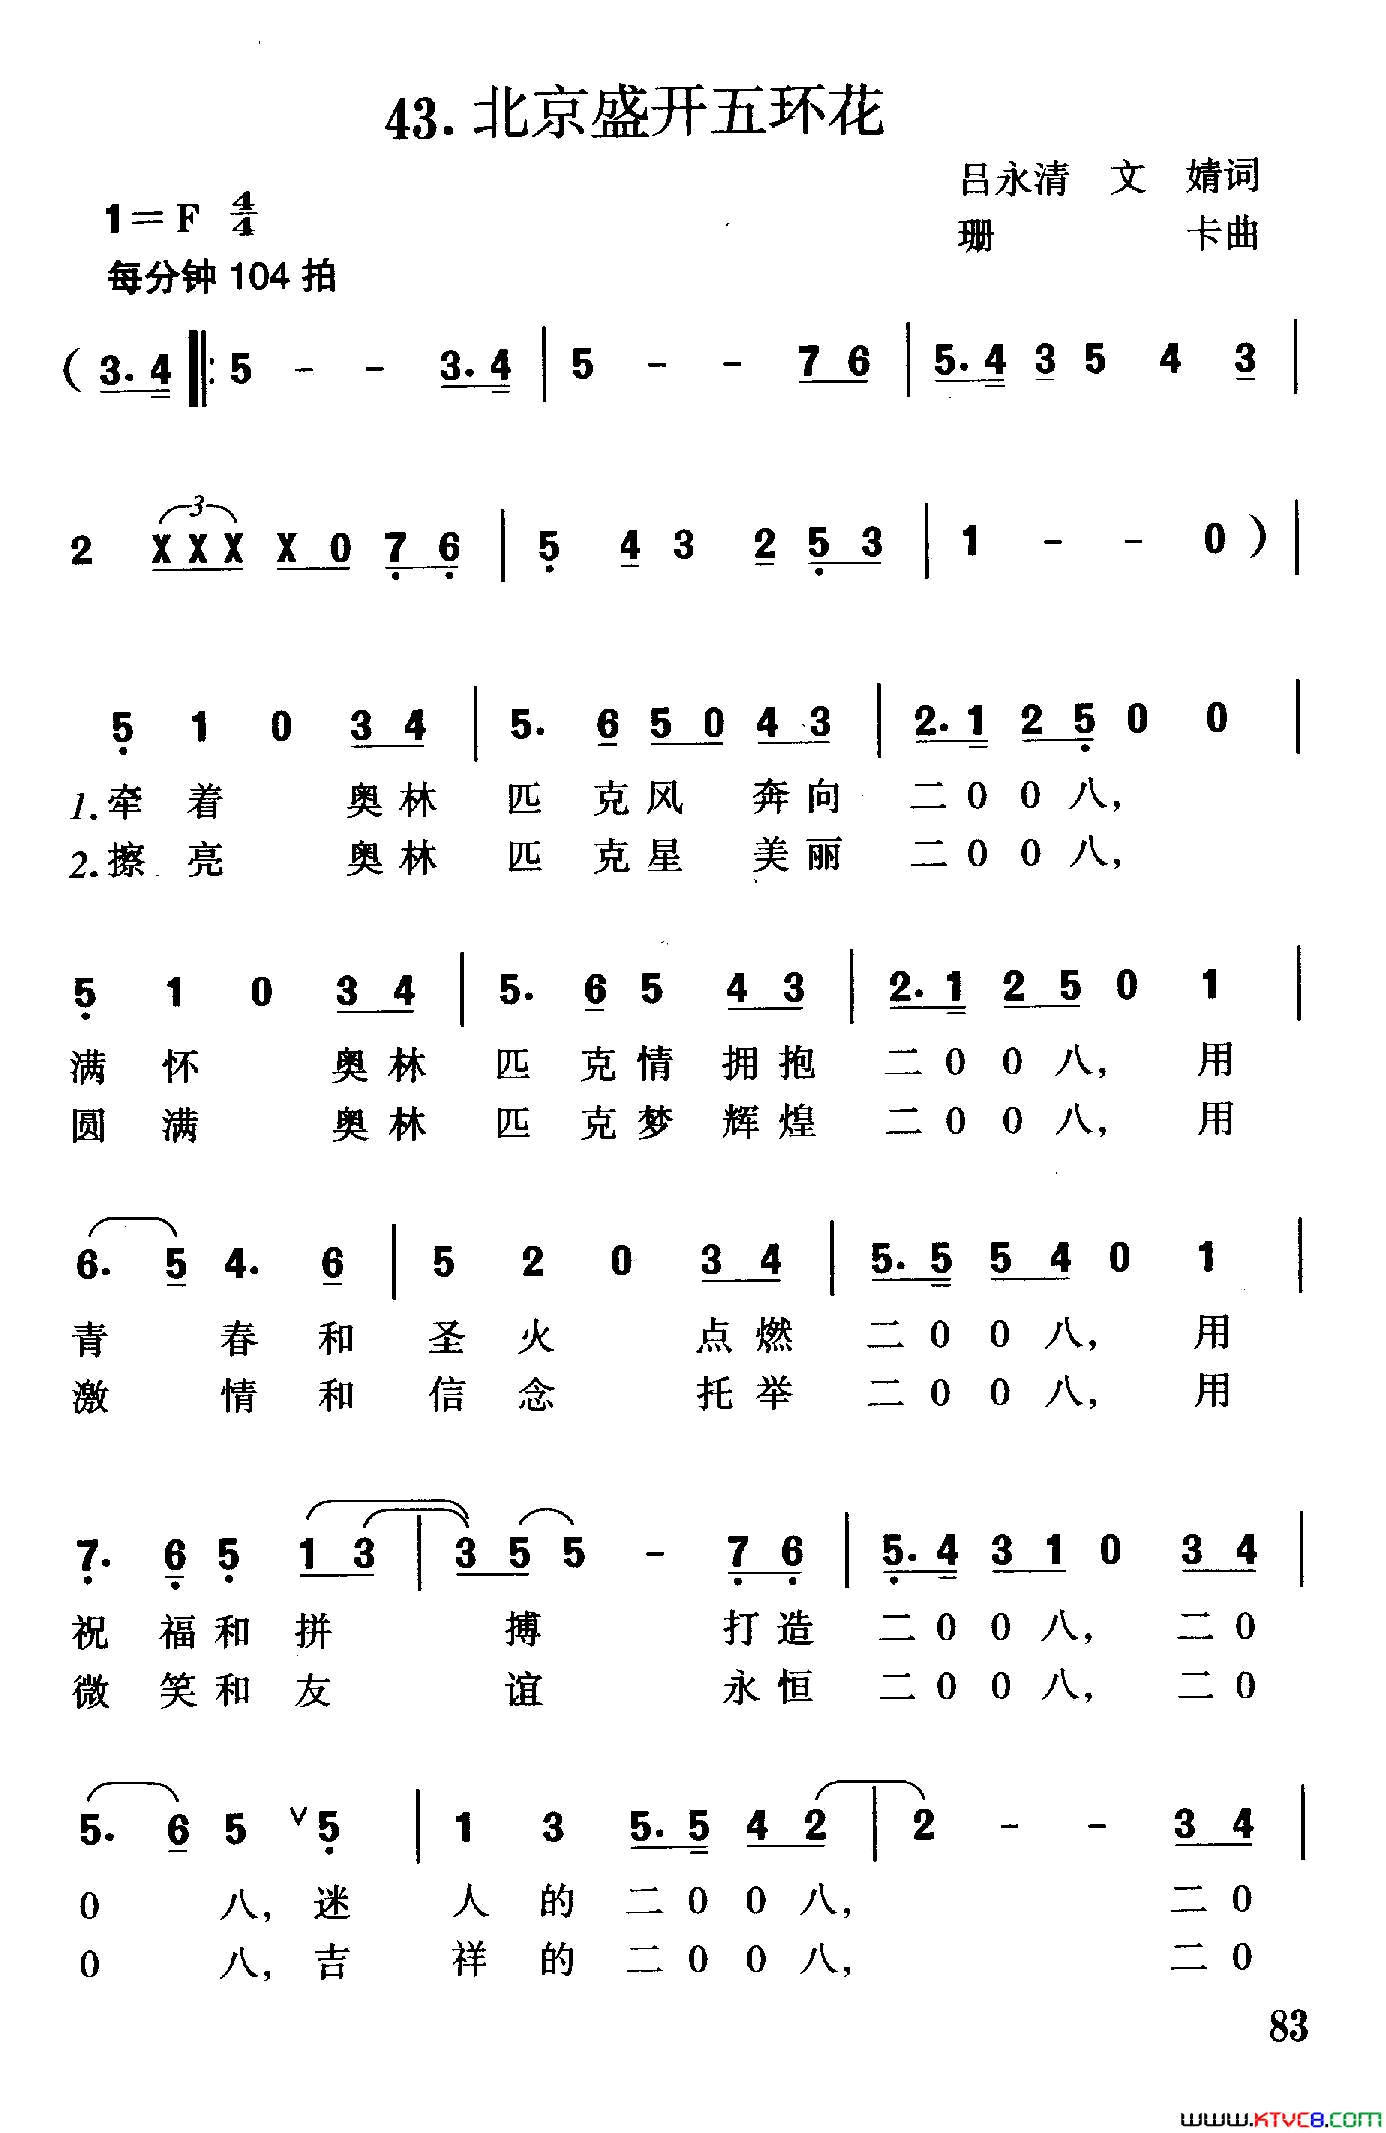 43. 北京盛开五环花
吕永清 文 婧词
1=F 4/4
珊 卡曲
每分钟 104 拍
( 3. 4 ‖: 5 - - 3. 4 | 5 - - 7 6 | 5. 4 3 5 4 3 |
2 3 X X X X 0 7 6 | 5 4 3 2 5 3 | 1 - - 0 ) |
5 1 0 3 4 | 5. 6 5 0 4 3 | 2. 1 2 5 0 0 |
1. 牵 着 奥 林 匹 克 风 奔 向 二 0 0 八,
2. 擦 亮 奥 林 匹 克 星 美 丽 二 0 0 八,
5 1 0 3 4 | 5. 6 5 4 3 | 2. 1 2 5 0 1 |
满 怀 奥 林 匹 克 情 拥 抱 二 0 0 八, 用
圆 满 奥 林 匹 克 梦 辉 煌 二 0 0 八, 用
6. 5 4. 6 | 5 2 0 3 4 | 5. 5 5 4 0 1 |
青 春 和 圣 火 点 燃 二 0 0 八, 用
激 情 和 信 念 托 举 二 0 0 八, 用
7. 6 5 1 3 | 3 5 5 - 7 6 | 5. 4 3 1 0 3 4 |
祝 福 和 拼 搏 打 造 二 0 0 八, 二 0
微 笑 和 友 谊 永 恒 二 0 0 八, 二 0
5. 6 5 ∨ 5 | 1 3 5. 5 4 2 | 2 - - 3 4 |
0 八, 迷 人 的 二 0 0 八, 二 0
0 八, 吉 祥 的 二 0 0 八, 二 0
83
www.KTVC8.COM